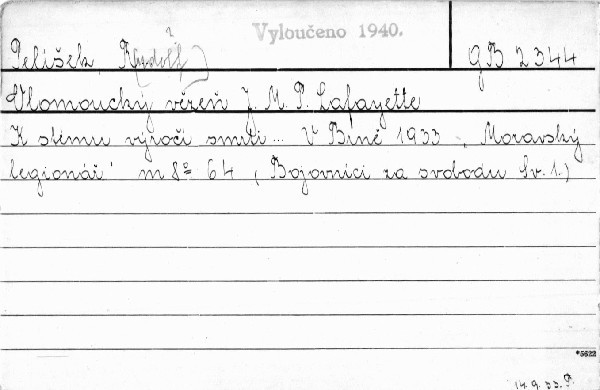 Vyloučeno 1940.
Pelíšek R(udolf) GB 2344
Olomoucký vězeň J. M. P. Lafayette
K stému výročí smrti ... V Brně 1933 „Moravský
legionář" m 8° 64 (Bojovníci za svobodu Sv. 1.)
*5622
14.9.33.P.